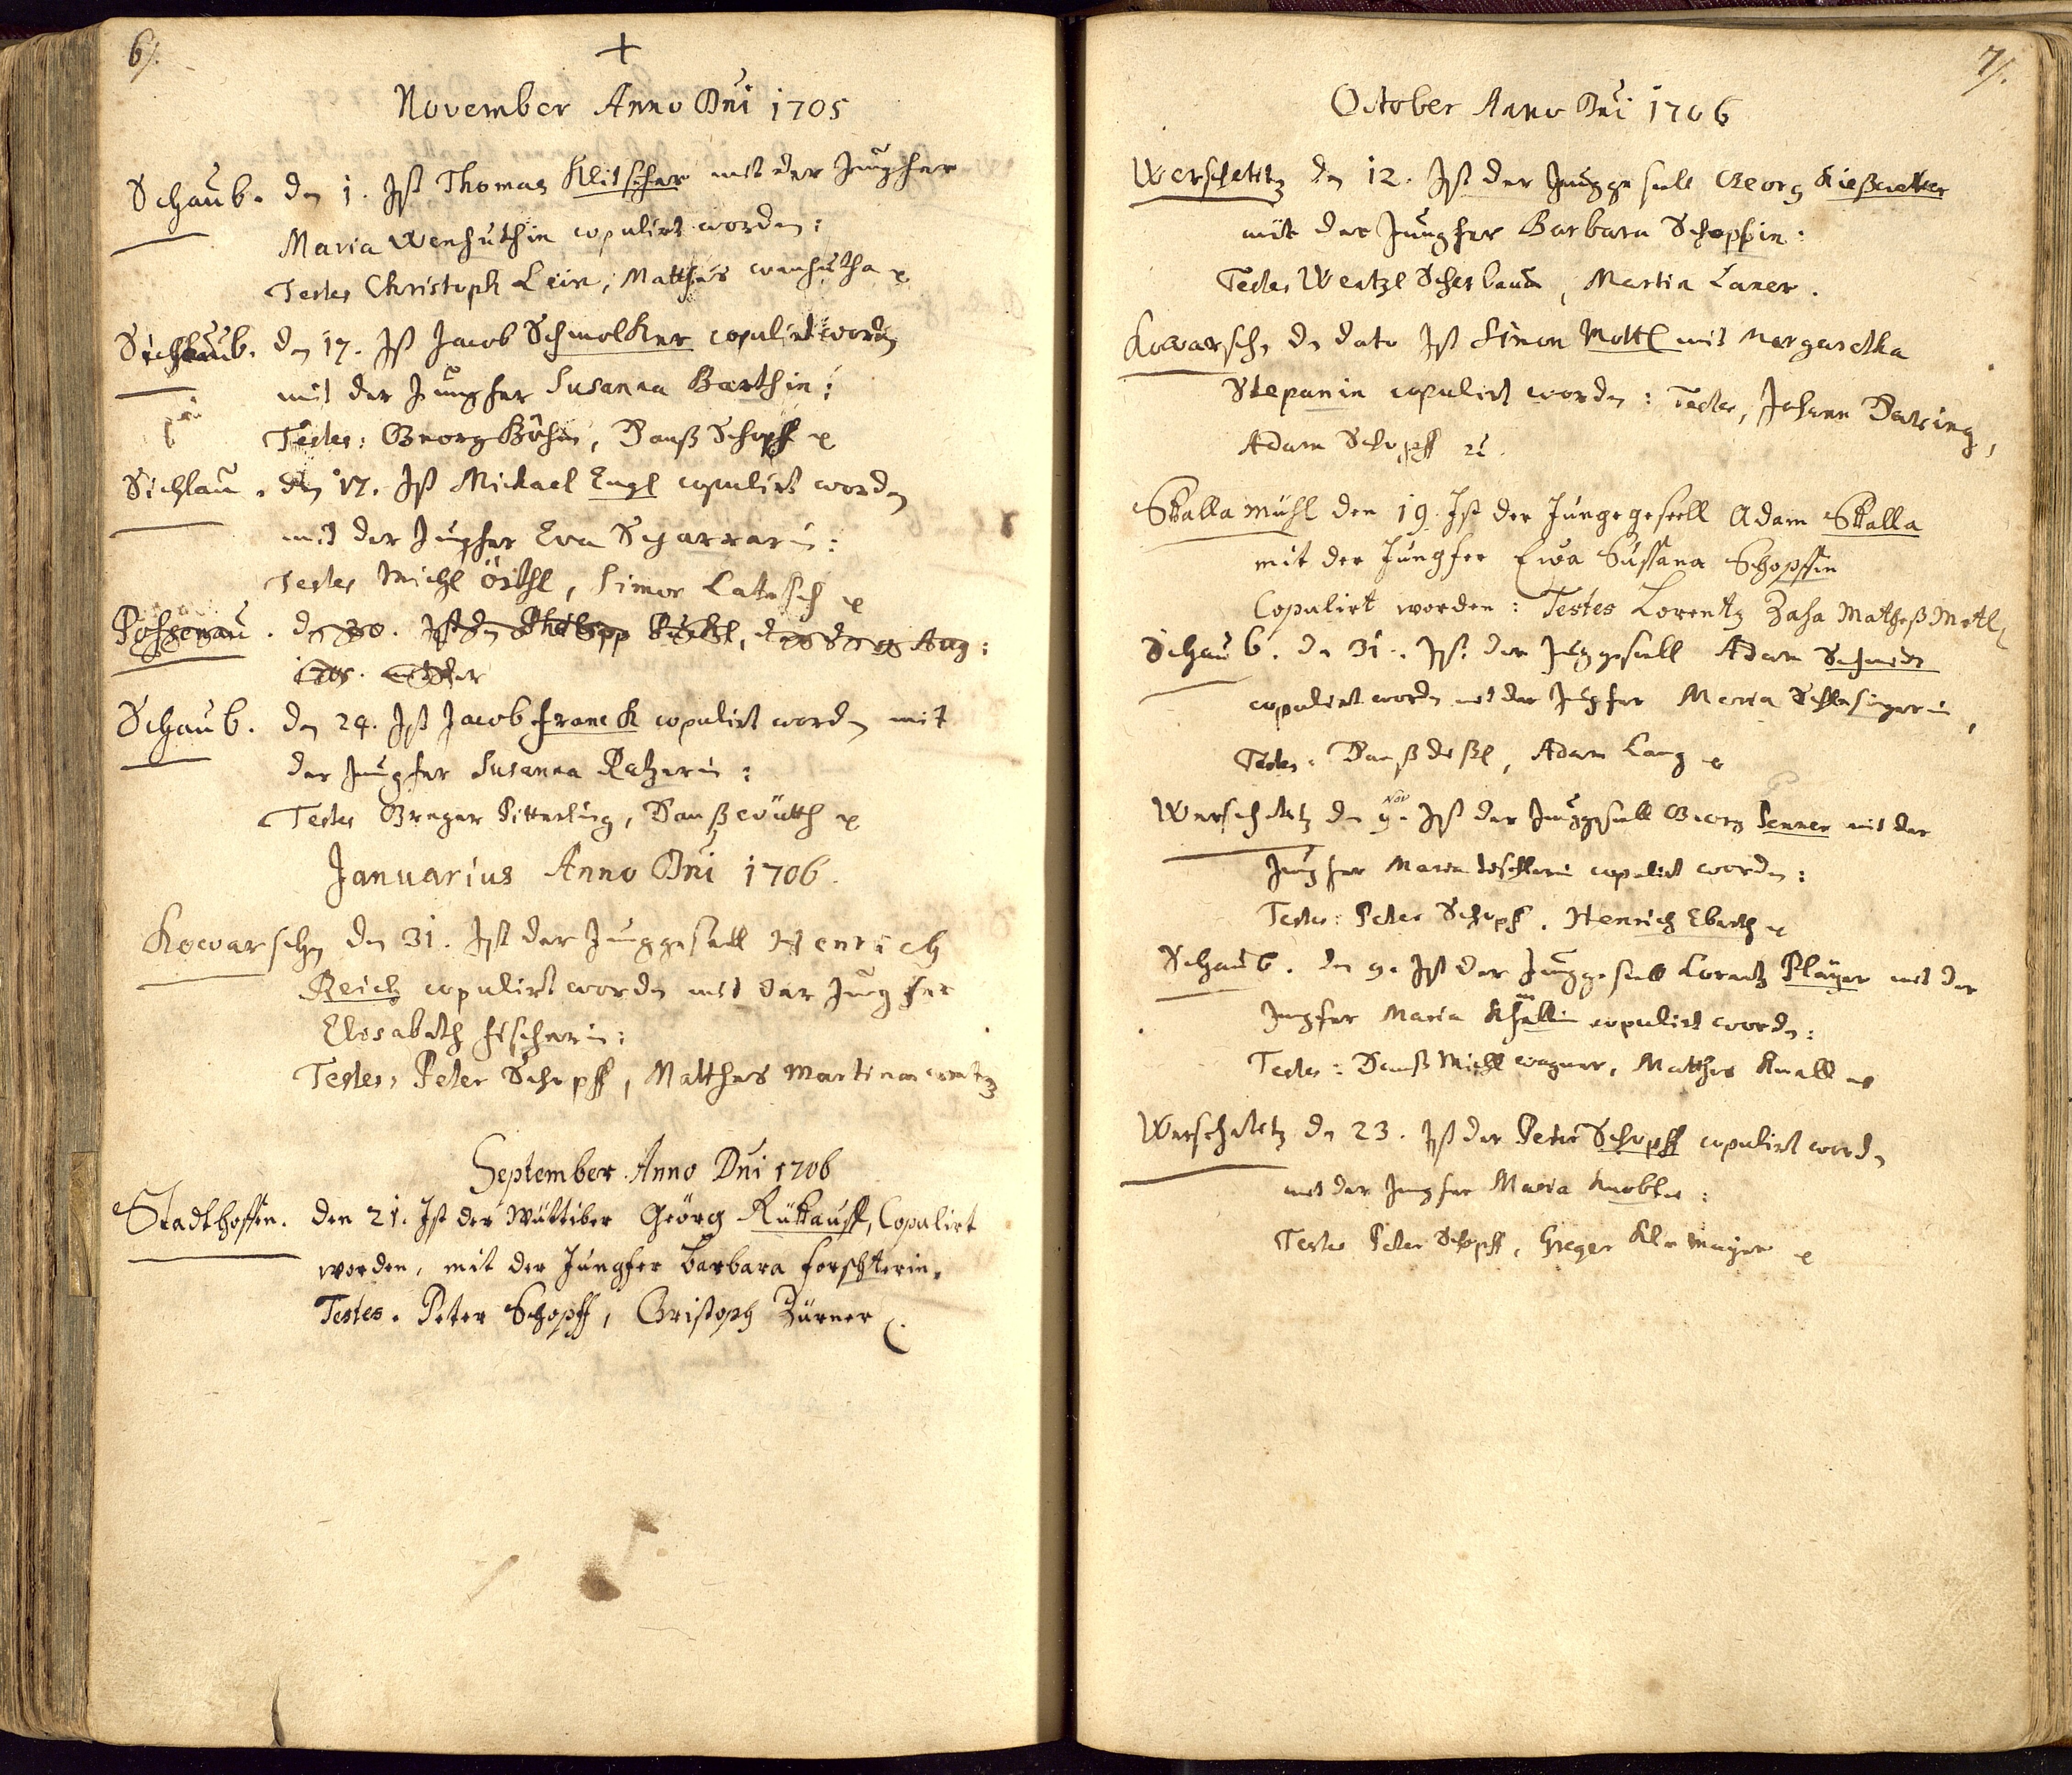 6/.
+
November Anno Dni 1705
Schaub. den 1. Ist Thomas Klitscher mit der Jungfer
Maria Wenhuthin copulirt worden:
Testes Christoph Lein, Matthes wenhutha
Schaub. den 17. Ist Jacob Schmolker copulirt worden
mit der Jungfer Susanna Barthin:
Testes: Georg Böhm, Hanß Schopff
Sichlau. den 17. Ist Michael Engl copulirt worden
mit der Jungfer Eva
Testes Michl Örthl, Simon
den 30. Ist den Philipp
1705.
Schaub. den 24. Ist Jacob franck copulirt worden mit
der Jungfer Susanna Ratzerin:
Testes Greger Pitterling, Hanß
Januarius Anno Dni 1706.
Kowarschen den 31. Ist der Junggesell Henrich
Reich copulirt worden mit der Jungfer
Elisabeth fischerin:
Testes, Peter Schopff, Matthes
September Anno Dni 1706
Stadthoffen. den 21. Ist der Wüttiber Geörg Rükauff, Copulirt
worden, mit der Jungfer barbara forschterin,
Testes. Peter Schopff, Christoph Zürner
7/.
October Anno Dni 1706
Werschetitz den 12. Ist der Junggesell Georg
mit der Jungfer Barbara Schopfin:
Testes Wentzl, Martin Laner.
Kowarschen de dato Ist Simon Mottl mit Margaretha
Stepanin copulirt worden: Testes, Johann
Adam Schopff
Skalla mühl den 19. Ist der Jungegesell Adam Skalla
mit der Jungfer Ewa Süssana Schopffin
Copulirt worden: Testes Lorentz Zaha Matheß Motl
Schaub. den 31. Ist der Junggesell Adam Schmidt
copulirt worden mit der Jungfer Maria Schlesingerin,
Testes: Hanß, Adam Lang
Werschetitz den 9. Nov Ist der Junggesell Georg Penner mit der
Jungfer Maria copulirt worden:
Testes: Peter Schopff. Henrich Eberth
Schaub. den 9. Ist der Junggesell Lorentz Pläyer mit der
Jungfer Maria copulirt worden:
Testes: Hanß Michl wagner, Matthes Knall
Werschetitz den 23. Ist der Peter Schopff copulirt worden
mit der Jungfer Maria
Testes Peter Schopff, Greger